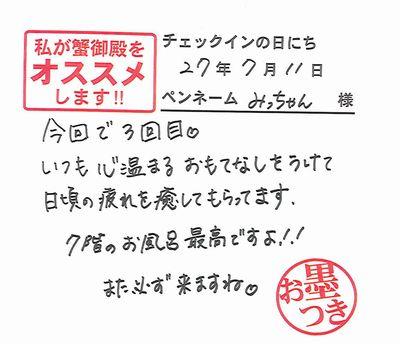 私が蟹御殿を
オススメ
します!!
チェックインの日にち
27年7月11日
ペンネーム みっちゃん 様
今回で3回目♡
いつも心温まるおもてなしをうけて
日頃の疲れを癒してもらってます.
7階のお風呂最高ですよ!!
また必ず来ますね♡
お墨つき